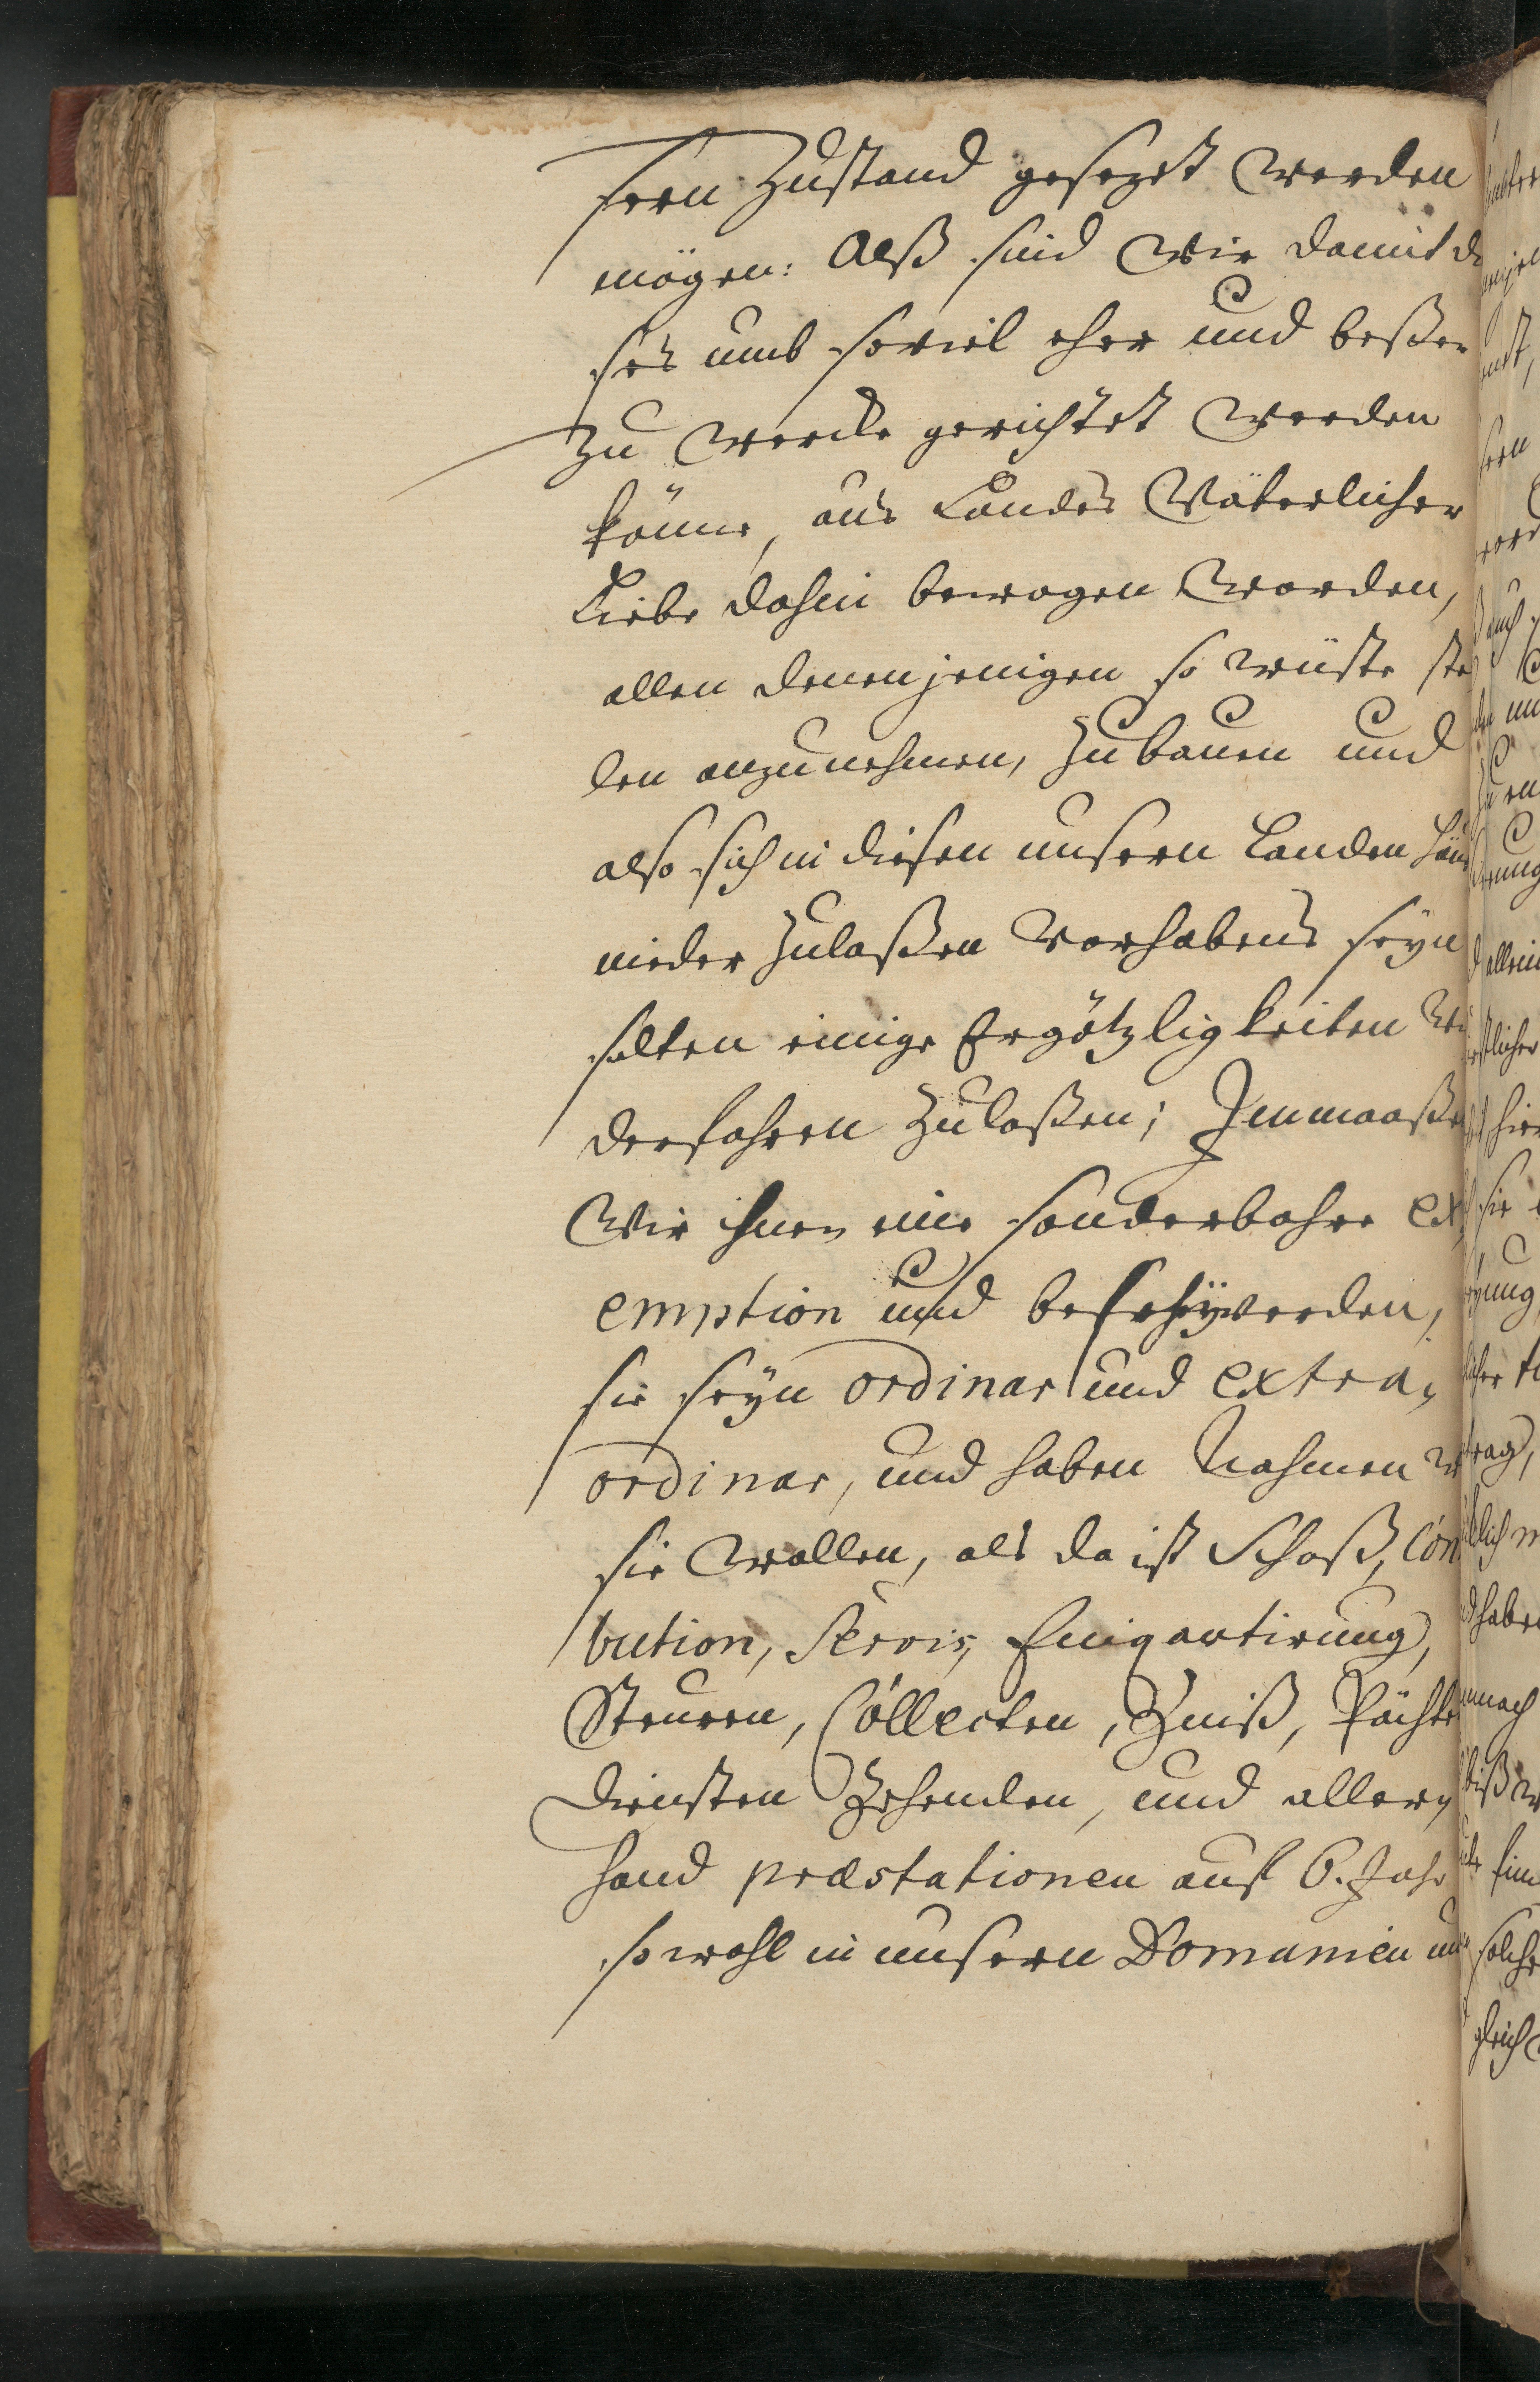 sern Zustand gesezet werden
mögen: Alß sind Wir damit di
ses umb soviel eher und beßer
zu wercke gerichtet werden
könne, aus Landes Väterlicher
Liebe dahin bewogen worden,
allen denenjenigen so wüste ste
len anzunehmen, zu bauen und
also sich in diesen unsern Landen häus
nieder zulaßen Vorhabens seyn
solten einige Ergötzligkeiten wi
derfahren zulaßen; Immaaßen
Wir ihnen eine sonderbahre ex
emption und befreyung werden,
sie seyn ordinar und extra,
ordinar, und haben Nahmen w
sie wollen, als da ist Schoß, Con
bution, Servis, Einqartirung,
Steuren, Collecten, Zinß, Pächte
Diensten Zehenden, und aller,
hand præstationen auf 6. Jahr
so wohl in unsern Domanien un